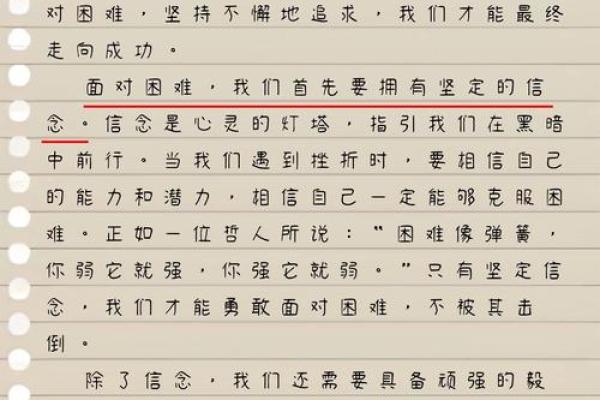 对困难，坚持不懈地追求，我们才能最终
走向成功。
面对困难，我们首先要拥有坚定的信
念。信念是心灵的灯塔，指引我们在黑暗
中前行。当我们遇到挫折时，要相信自己
的能力和潜力，相信自己一定能够克服困
难。正如一位哲人所说：“困难像弹簧，
你弱它就强，你强它就弱。”只有坚定信
念，我们才能勇敢面对困难，不被其击
倒。
除了信念，我们还需要具备顽强的毅